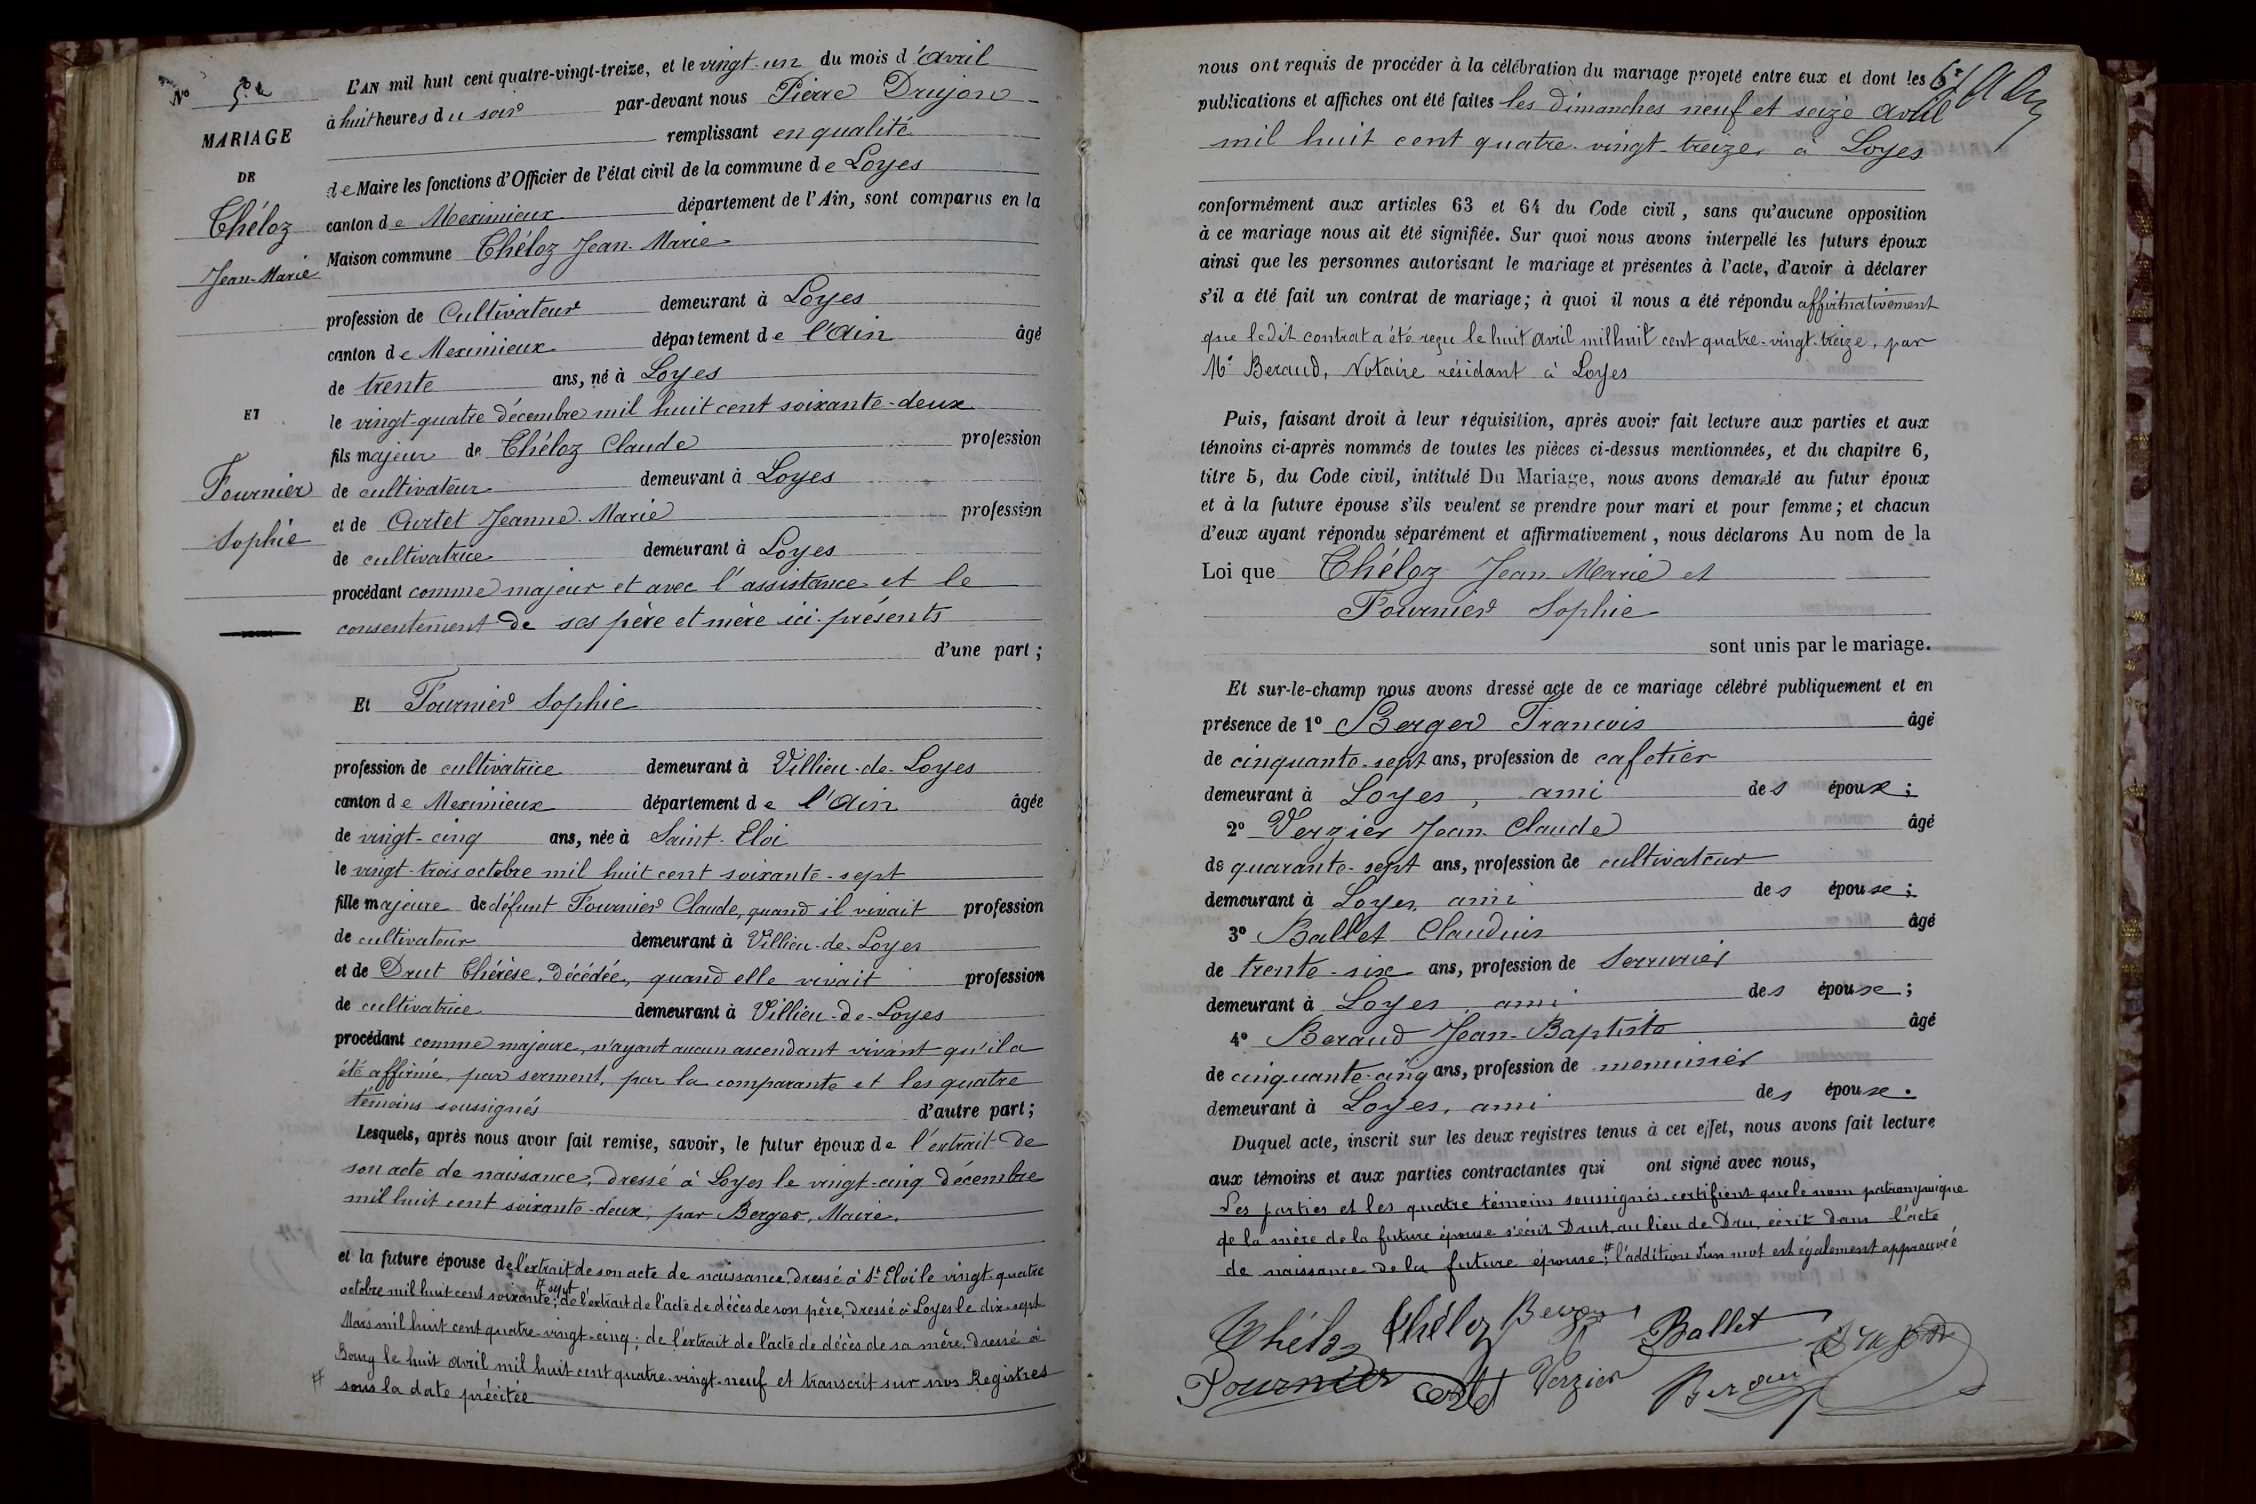 No 5.e
MARIAGE
DE
Théloz
Jean-Marie
ET
Fournier
Sophie
L'AN mil huit cent quatre-vingt-treize, et le vingt-un du mois d'avril
à huit heures du soir par-devant nous Pierre Drujon
remplissant en qualité
de Maire les fonctions d'Officier de l'état civil de la commune de Loyes
canton de Meximieux département de l'Ain, sont comparus en la
Maison commune Théloz Jean-Marie
profession de Cultivateur demeurant à Loyes
canton de Meximieux département de l'Ain âgé
de trente ans, né à Loyes
le vingt-quatre décembre mil huit cent soixante-deux
fils majeur de Théloz Claude profession
de cultivateur demeurant à Loyes
et de Curtet Jeanne-Marie profession
de cultivatrice demeurant à Loyes
procédant comme majeur et avec l'assistance et le
consentement de ses père et mère ici présents
d'une part ;
Et Fournier Sophie
profession de cultivatrice demeurant à Villieu-de-Loyes
canton de Meximieux département de l'Ain âgée
de vingt-cinq ans, née à Saint-Eloi
le vingt-trois octobre mil huit cent soixante-sept
fille majeure de défunt Fournier Claude, quand il vivait profession
de cultivateur demeurant à Villieu-de-Loyes
et de Drut Thérèse, décédée, quand elle vivait profession
de cultivatrice demeurant à Villieu-de-Loyes
procédant comme majeure, n'ayant aucun ascendant vivant qu'il a
été affirmé, par serment, par la comparante et les quatre
témoins soussignés d'autre part ;
Lesquels, après nous avoir fait remise, savoir, le futur époux de l'extrait de
son acte de naissance, dressé à Loyes le vingt-cinq décembre
mil huit cent soixante-deux, par Berger, Maire.
et la future épouse de l'extrait de son acte de naissance, dressé à St Eloi le vingt-quatre
octobre mil huit cent soixante # sept ; de l'extrait de l'acte de décès de son père, dressé à Loyes le dix-sept
Mars mil huit cent quatre-vingt-cinq ; de l'extrait de l'acte de décès de sa mère, dressé à
Bourg le huit avril mil huit cent quatre-vingt-neuf et transcrit sur nos Registres
# sous la date précitée
nous ont requis de procéder à la célébration du mariage projeté entre eux et dont les
publications et affiches ont été faites les dimanches neuf et seize avril
mil huit cent quatre-vingt-treize à Loyes
conformément aux articles 63 et 64 du Code civil, sans qu'aucune opposition
à ce mariage nous ait été signifiée. Sur quoi nous avons interpellé les futurs époux
ainsi que les personnes autorisant le mariage et présentes à l'acte, d'avoir à déclarer
s'il a été fait un contrat de mariage ; à quoi il nous a été répondu affirmativement
que ledit contrat a été reçu le huit avril mil huit cent quatre-vingt-treize, par
Me Beraud, Notaire résidant à Loyes
Puis, faisant droit à leur réquisition, après avoir fait lecture aux parties et aux
témoins ci-après nommés de toutes les pièces ci-dessus mentionnées, et du chapitre 6,
titre 5, du Code civil, intitulé Du Mariage, nous avons demandé au futur époux
et à la future épouse s'ils veulent se prendre pour mari et pour femme ; et chacun
d'eux ayant répondu séparément et affirmativement, nous déclarons Au nom de la
Loi que Théloz Jean-Marie et
Fournier Sophie
sont unis par le mariage.
Et sur-le-champ nous avons dressé acte de ce mariage célébré publiquement et en
présence de 1º Berger Francois âgé
de cinquante-sept ans, profession de cafetier
demeurant à Loyes, ami des époux ;
2º Verzier Jean-Claude âgé
de quarante-sept ans, profession de cultivateur
demeurant à Loyes, ami des épouse ;
3º Ballet Claudius âgé
de trente-six ans, profession de Serrurier
demeurant à Loyes, ami des épouse ;
4º Beraud Jean-Baptiste âgé
de cinquante-cinq ans, profession de menuisier
demeurant à Loyes, ami des épouse.
Duquel acte, inscrit sur les deux registres tenus à cet effet, nous avons fait lecture
aux témoins et aux parties contractantes qui ont signé avec nous,
Les parties et les quatre témoins soussignés certifient que le nom patronymique
de la mère de la future épouse s'écrit Drut au lieu de Dru, écrit dans l'acte
de naissance de la future épouse ; # l'addition d'un mot est également approuvée
Théloz Théloz Berger Ballet Drujon
Fournier Curtet Verzier Beraud